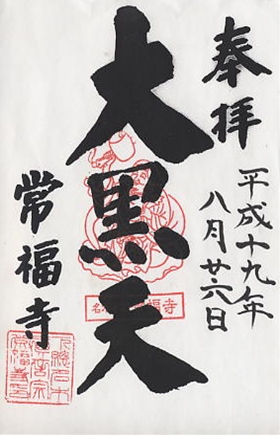 奉拝
平成十九年
八月廿六日
大黒天
常福寺